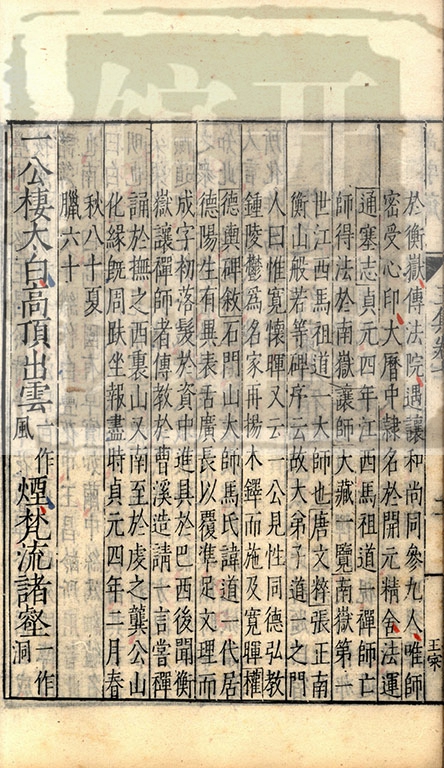 於衡嶽傳法院遇讓和尚同參九人唯師
密受心印大曆中隸名於開元精舍法運
通塞志貞元四年江西馬祖道一禪師亡
師得法於南嶽讓師大藏一覽南嶽第一
世江西馬祖道一大師也唐文粹張正甫
衡山般若等碑序云故大弟子道一之門
人曰惟寬懷暉又云一公見性同德弘教
鍾陵鬱為名家再揚木鐸而施及寬暉權
德輿碑敘石門山大師馬氏諱道一代居
德陽生有異表舌廣長以覆準足文理而
成字初落髮於資中進具於巴西後聞衡
嶽讓禪師者傳教於曹溪造請方言嘗禪
誦於撫之西裏山又南至於虔之龔公山
化緣旣周趺坐報盡時貞元四年二月春
秋八十夏
臘六十
一公棲太白高頂出雲一作風煙梵流諸壑一作洞